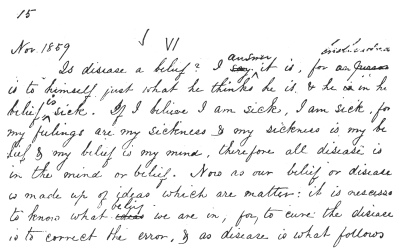 15
Nov 1859 VI
Is disease a belief? I answer it is, for an individual
is to himself just what he thinks he is, & he is in his
belief is sick. If I believe I am sick, I am sick, for
my feelings are my sickness & my sickness is my be
lief, & my belief is my mind, therefore all disease is
in the mind or belief. Now as our belief or disease
is made up of ideas which are matter: it is necessa
to know what belief we are in, for, to cure the disease
is to correct the error, & as disease is what follows